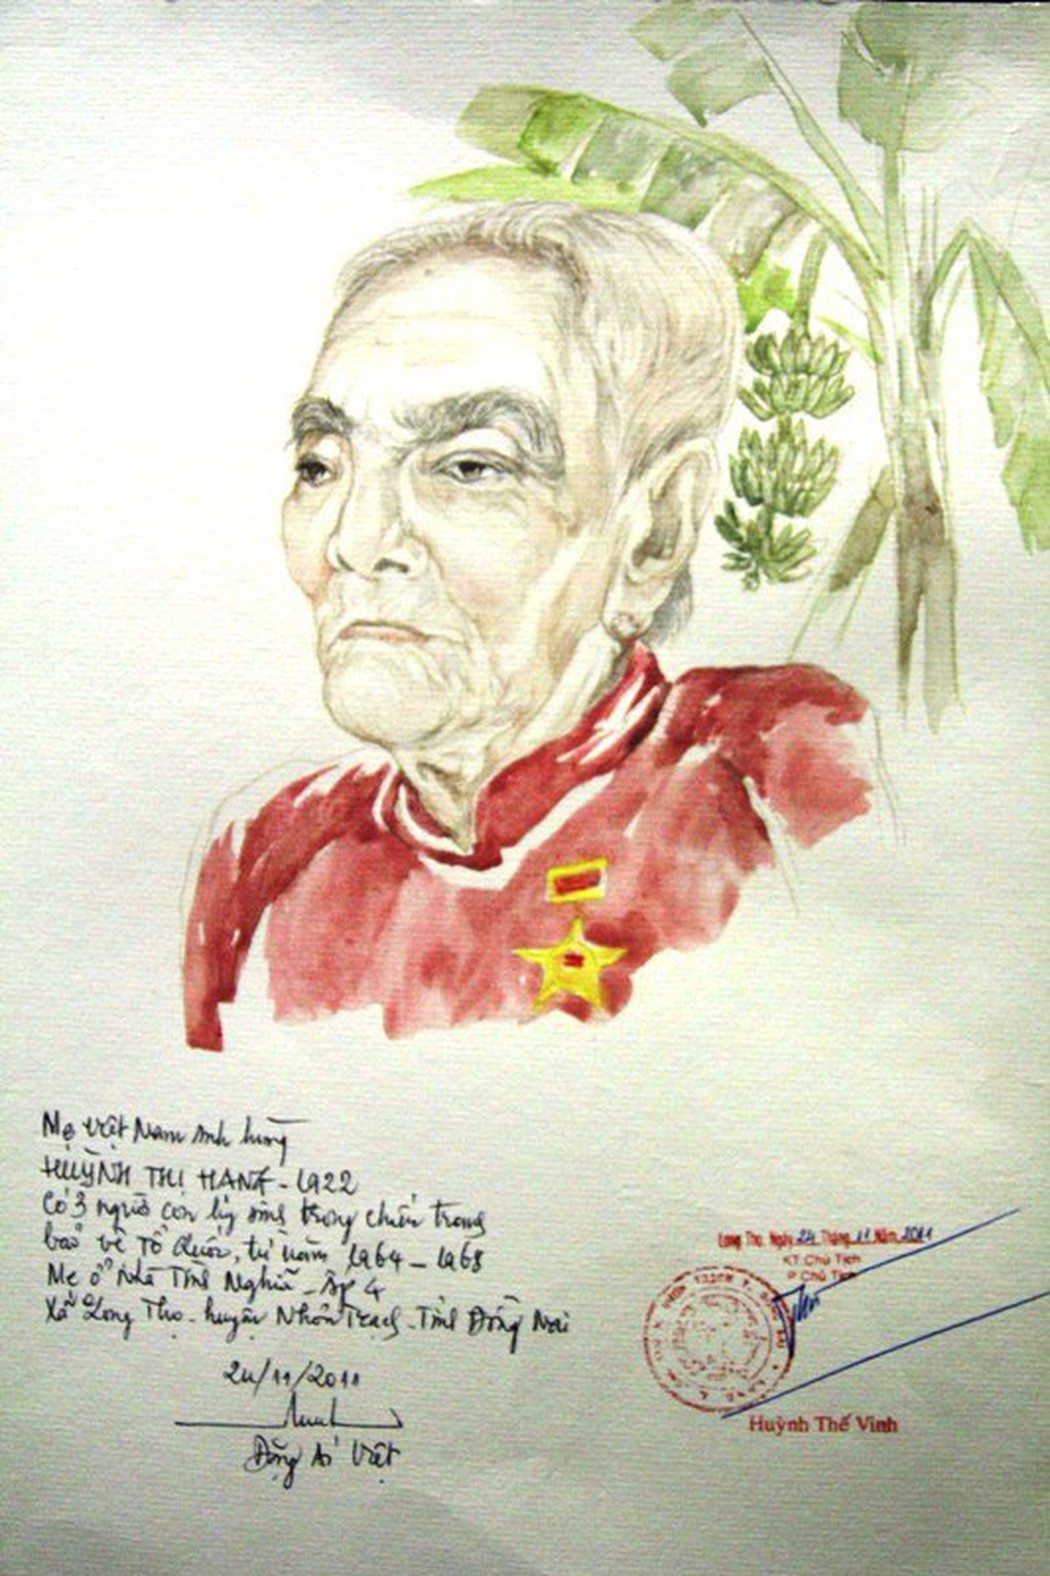 Mẹ Việt Nam anh hùng
HUỲNH THỊ HANG - 1922
Có 3 người con hy sinh trong chiến trang
bảo vệ Tổ Quốc, từ năm 1964 - 1968
Mẹ ở Nhà Tình Nghĩa - Ấp 4
Xã Long Thọ - huyện Nhơn Trạch - Tỉnh Đồng Nai
24/11/2011
Đặng Ái Việt
Long Thọ, Ngày 24 Tháng 11 Năm 2011
KT Chủ Tịch
P Chủ Tịch
Huỳnh Thế Vinh